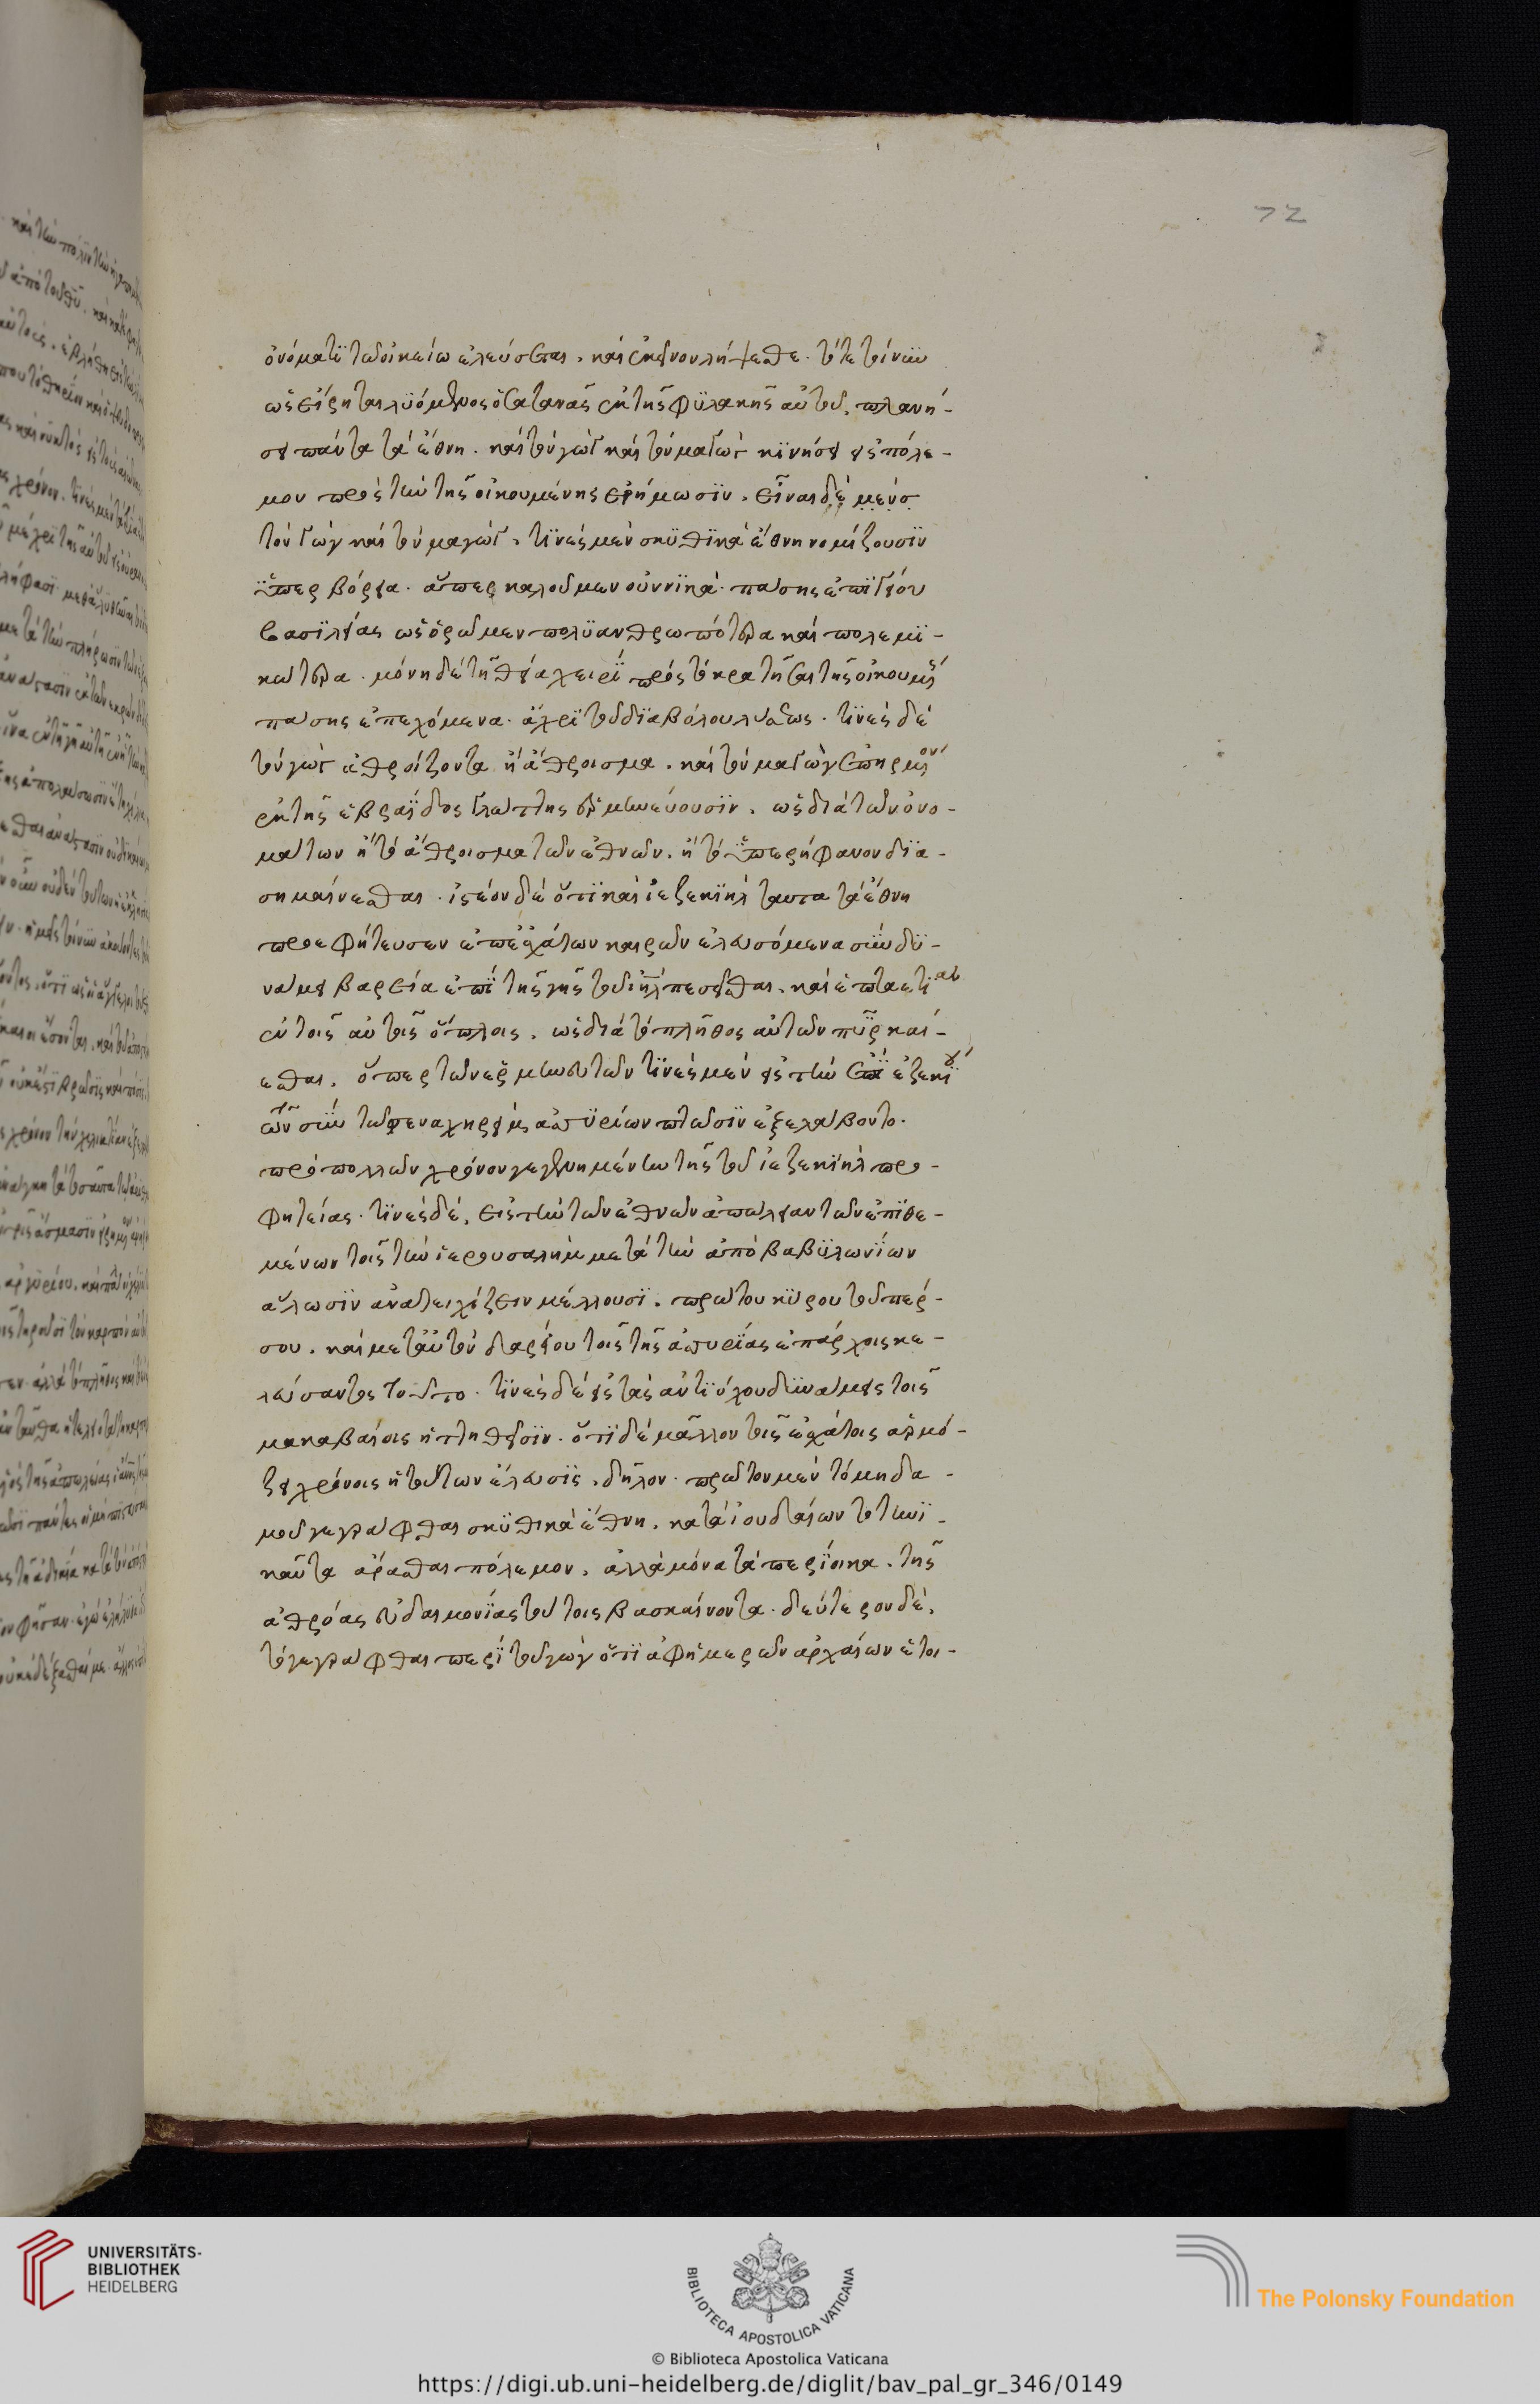 72
ὀνόματϊ τῶ οἰκείω ἐλεύσεται, καὶ ἐκεῖνον λήψεσθε. τότε τοίνυν
ὡς εἴρηται λϋόμενος ὁ σατανᾶς ἐκ τῆς φϋλακῆς αὐτοῦ, πλανή-
σει πάντα τὰ ἔθνη. καὶ τὸν γὼγ καὶ τὸν μαγὼγ κϊνήσει εἰς πόλε-
μον πρὸς τὴν τῆς οἰκουμένης ἐρήμωσϊν. εἶναι δὲ
τὸν γὼγ καὶ τὸν μαγὼγ, τϊνὲς μὲν σκϋθϊκὰ ἔθνη νομίζουσϊν
ϋπερβόρεια. ἅπερ καλοῦμεν οὐννϊκά. πάσης ἐπϊγείου
βασϊλείας ὡς ὁρῶμεν πολϋανθρωπότερα καὶ πολεμϊ-
κώτερα. μόνη δὲ τῆ θεία χειρϊ πρὸς τὸ κρατῆσαι τῆς οἰκουμένης
πάσης ἐπεχόμενα. ἄχρϊ τοῦ δϊαβόλου λύσεως. τϊνὲς δὲ
τὸν γὼγ ἀθροίζοντα ἢ ἄθροισμα. καὶ τὸν μαγὼγ ἐπηρμένον
ἐκ τῆς ἑβραΐδος γλώττης ἑρμηνεύουσϊν. ὡς διὰ τῶν ὀνο-
μάτων ἢ τὸ ἄθροισμα τῶν ἐθνῶν. ἢ τὸ ὑπερήφανον δϊα-
σημαίνεσθαι. ἰστέον δὲ ὅτϊ καὶ ἰεζεκϊὴλ ταῦτα τὰ ἔθνη
προεφήτευσεν ἐπ' ἐσχάτων καιρῶν ἐλευσόμενα σὺν δϋ-
νάμει βαρεία ἐπὶ τῆς γῆς τοῦ ἰηλ πεσεῖσθαι. καὶ ἑπτὰ ἔτεσιν
ἐν τοῖς αὐτοῖς ὅπλοις. ὡς διὰ τὸ πλῆθος αὐτῶν πῦρ καί-
εσθαι. ὅπερ τῶν ἑρμηνευτῶν τϊνὲς μὲν εἰς τὴν ἐπὶ ἐζεκϊου
τῶν σὺν τῶ σεναχηρεὶμ ἀσσϋρίων πτῶσϊν ἐξελάβοντο.
πρὸ πολλῶν χρόνον γεγενημένην τῆς τοῦ ἰεζεκϊὴλ προ-
φητείας. τϊνὲς δὲ, εἰς τὴν τῶν ἐθνῶν ἀπώλειαν τῶν ἐπϊθε-
μένων τοῖς τὴν ἱερουσαλὴμ μετὰ τὴν ἀπὸ βαβϋλωνϊων
ἅλωσϊν ἀνατειχίζειν μέλλουσϊ. πρῶτον κϋρου τοῦ πέρ-
σου. καὶ μετ' αὐτὸν δαρείου τοῖς τῆς ἀσσυρϊας ἐπάρχοις κε-
λεύσαντος τοῦτο. τϊνὲς δὲ εἰς τὰς ἀντϊόχου δϋνάμεις τοῖς
μακαβαίοις ἡττηθεῖσϊν. ὅτϊ δὲ μᾶλλον τοῖς ἐσχάτοις ἁρμό-
ζει χρόνοις ἡ τούτων ἔλευσϊς. δῆλον. πρῶτον μὲν τὸ μηδα-
μοῦ γεγράφθαι σκϋθικὰ ἔθνη. κατὰ ἰουδαίων τὸ τηνϊ-
καῦτα ἄρασθαι πόλεμον. ἀλλὰ μόνα τὰ περίοικα. τῆς
ἀθρόας εὐδαιμονϊας τούτοις βασκαίνοντα. δεύτερον δὲ,
τὸ γεγράφθαι περϊ τοῦ γὼγ ὅτϊ ἀφ' ἡμερῶν ἀρχαίων ἑτοι-
UNIVERSITÄTS-
BIBLIOTHEK
HEIDELBERG
BIBLIOTECA APOSTOLICA VATICANA
The Polonsky Foundation
© Biblioteca Apostolica Vaticana
https://digi.ub.uni-heidelberg.de/diglit/bav_pal_gr_346/0149